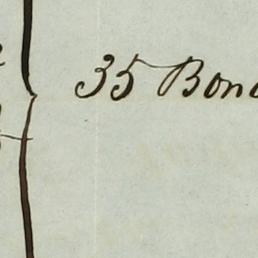 35 Bond